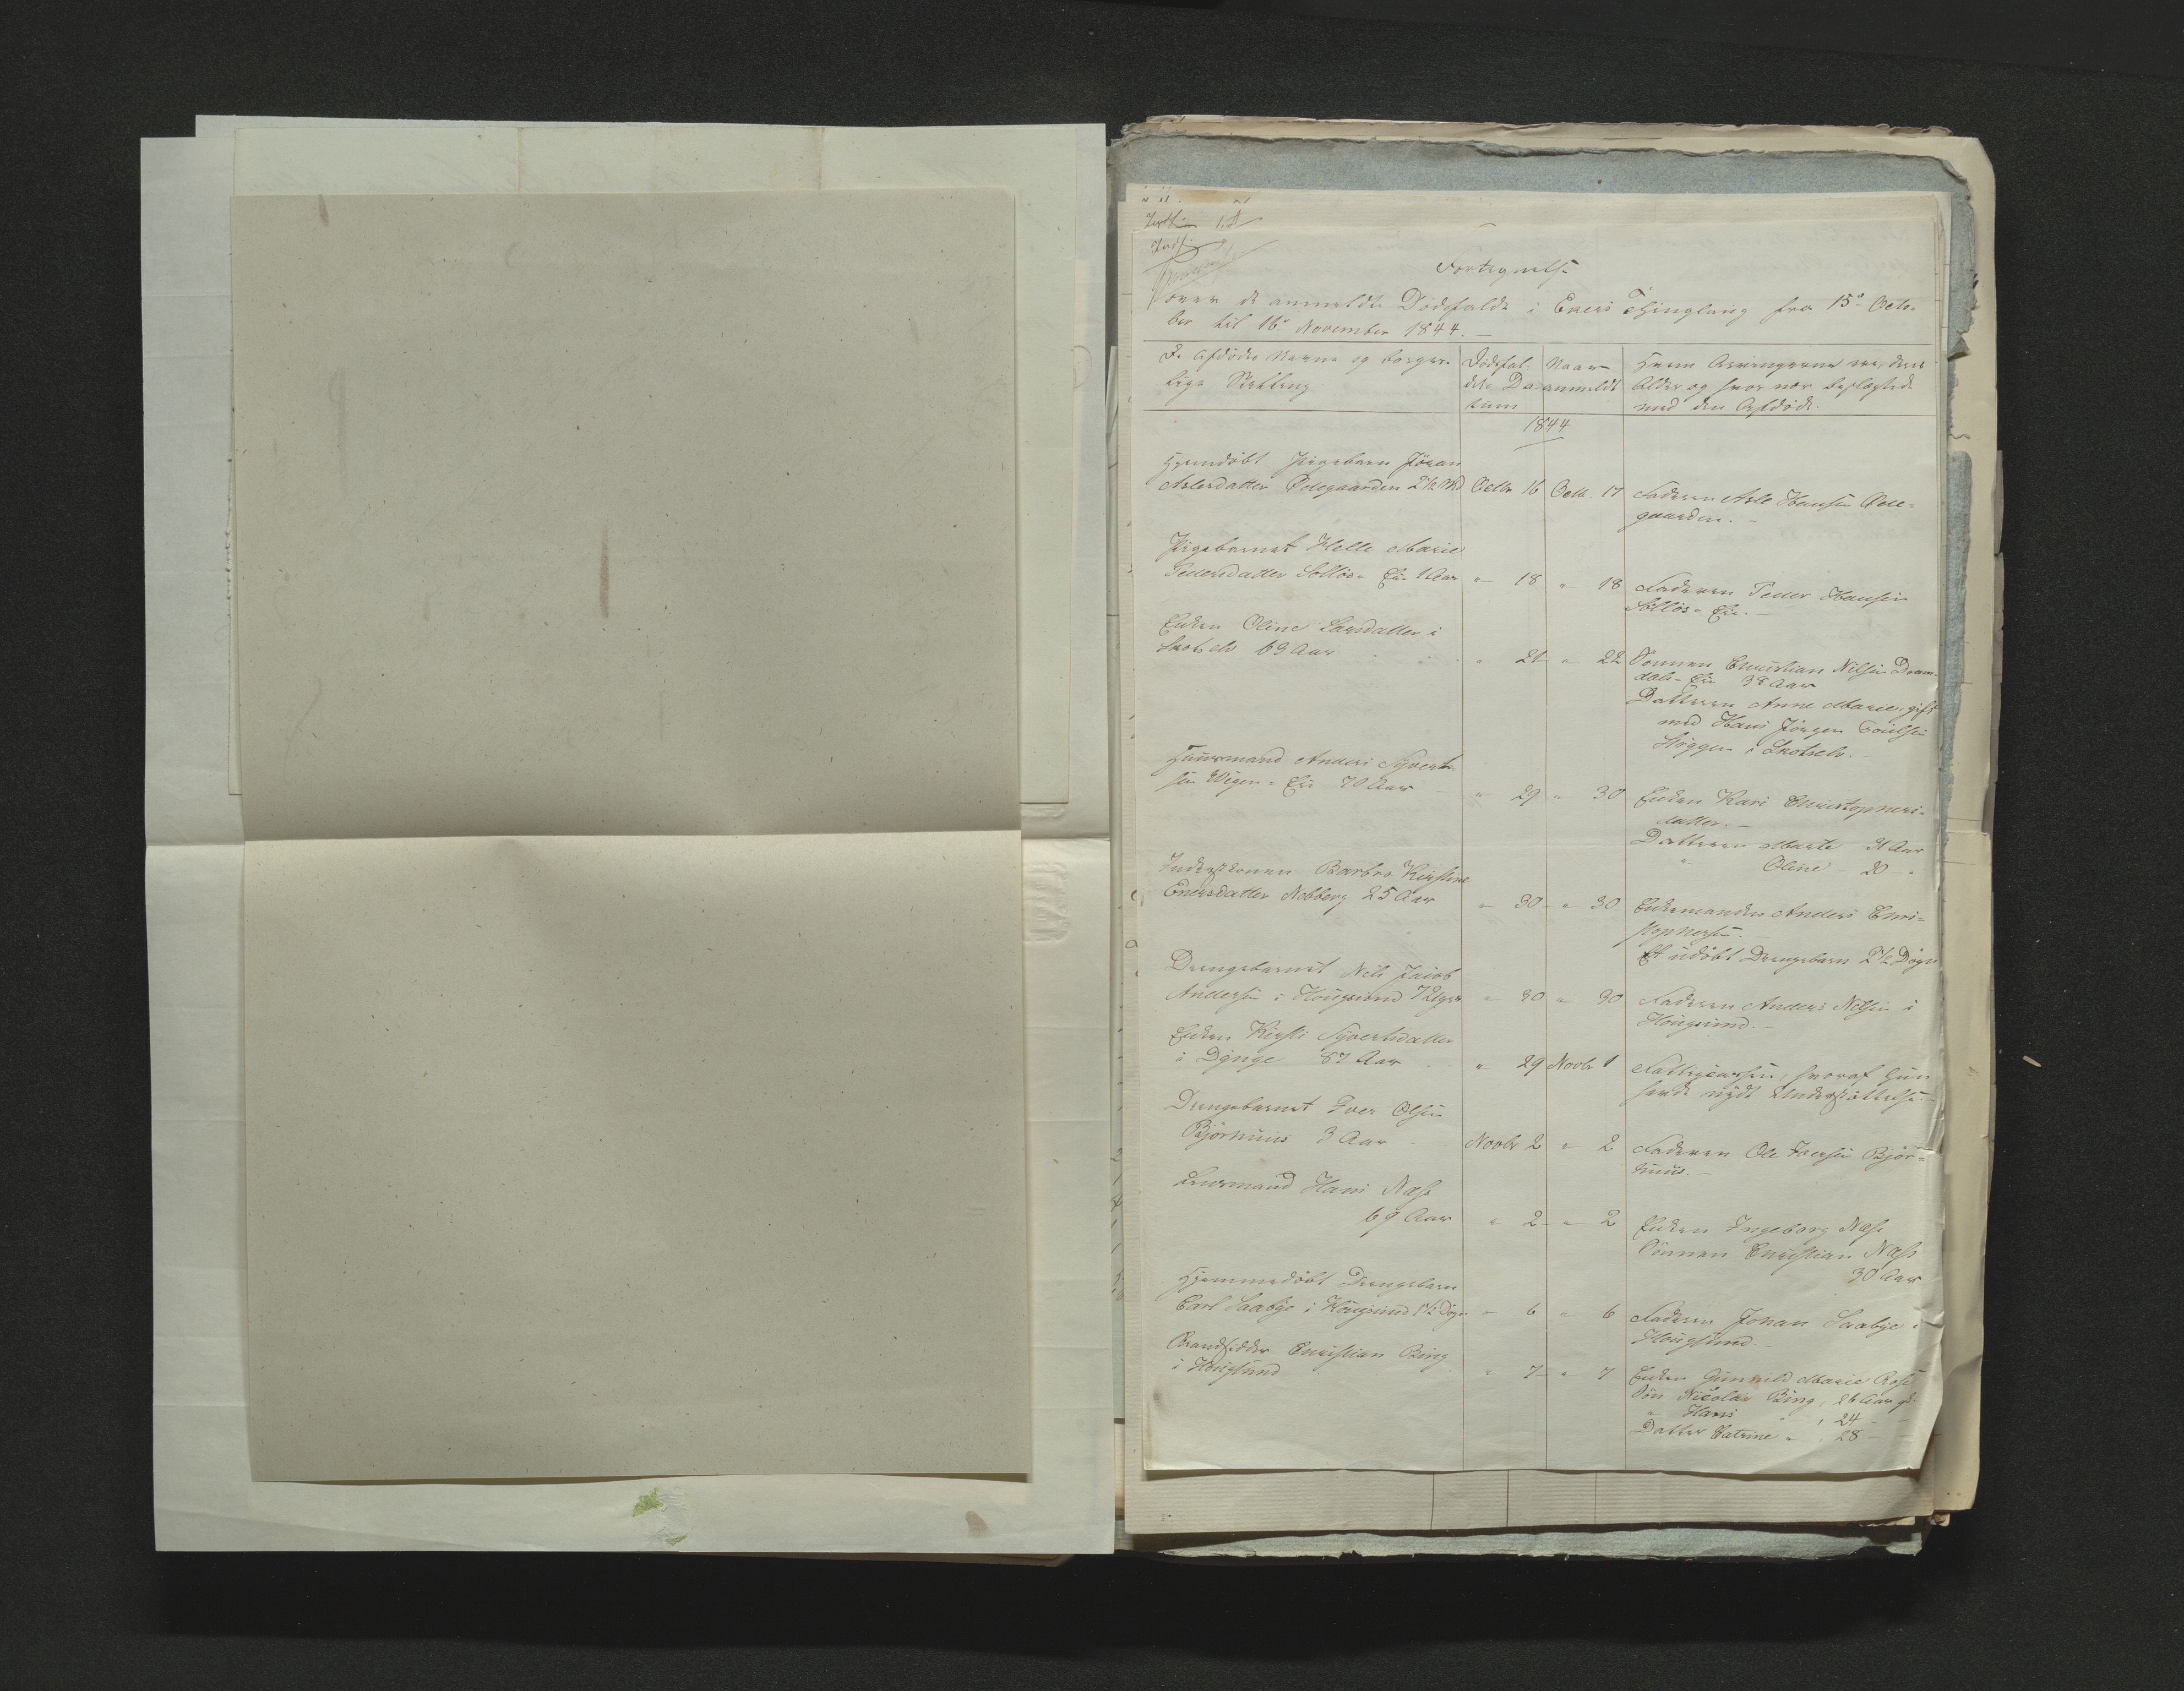 Fortegnelse
over de anmeldte Dødsfalde i Ekers Thinglaug fra 15de Octo-
ber til 16de November 1844.
De Afdødes Navne og borger-
lige Stilling
Dødsfal-
dets Da-
tum
Naar
anmeldt
Hvem Arvingerne ere, deres
Alder og hvor nær beslægtede
med den Afdøde.
1844
Hjemdøbt Pigebarn Jöran
Aslesdatter Ödegaarden 2½ Md Octbr 16 Octb. 17 Faderen Asle Hansen Öde-
gaarden.
Pigebarnet Helle Marie
Pedersdatter Solløs-Eie 1 Aar " 18 " 18 Faderen Peder Hansen
Solløs-Eie.
Enken Oline Larsdatter i
Skotselv 69 Aar " 21 " 22 Sønnen Christian Nilsen
dals-Eie 38 Aar
Datteren Anne Marie, gift
med Hans Jörgen
i Skotselv.
Huusmand Anders Syverts
sen Wigen-Eie 70 Aar " 29 " 30 Enken Kari Christophers-
datter.
Datteren Marte 31 Aar
" Oline 20 "
Inderstkonen Barbro Kirstine
Enersdatter Nobberg 25 Aar " 30 " 30 Enkemanden Anders Chri-
stophersen.
Et udöbt Drengebarn 2½ Døgn
Drengebarnet Nils Jacob
Andersen i Hougsund 7 Uger " 30 " 30 Faderen Anders Nilsen i
Hougsund.
Enken Kirsti Syvertsdatter
i Dynge 87 Aar " 29 Novbr 1 Fattigcassen, hvoraf hun
havde nydt Understøttelse.
Drengebarnet Iver Olsen
Björnhuus 3 Aar Novbr 2 " 2 Faderen Ole Iversen Björn-
huus.
Lensmand Hans Næss
69 Aar " 2 " 2 Enken Ingeborg Næss
Sønnen Christian Næss
30 Aar
Hjemmedøbt Drengebarn
Carl Saabye i Hougsund 1½ Døgn " 6 " 6 Faderen Johan Saabye i
Hougsund.
Strandsidder Christian Bing
i Hougsund " 7 " 7 Enken Gunnild Marie Rose
Søn Nicolai Bing, 26 Aar gl.
" Hans " , 24 –
Datter Catrine " , 28 –